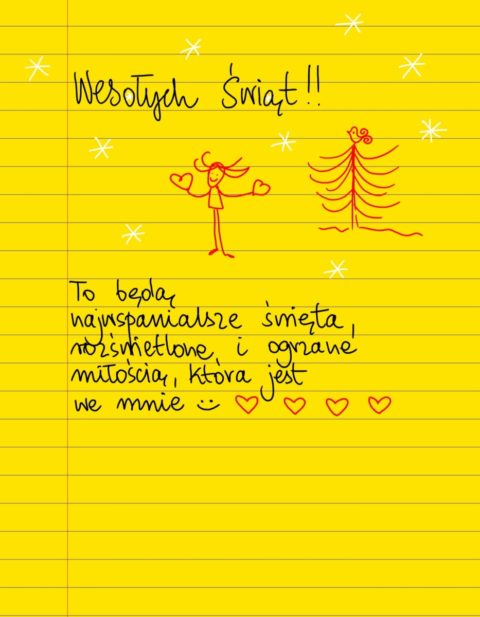 Wesołych Świąt!!
To będą
najwspanialsze święta,
rozświetlone i ogrzane
miłością, która jest
we mnie